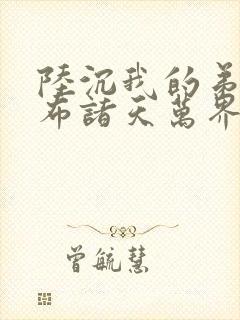 陸沉我的弟
布諸天萬界
曾毓慧